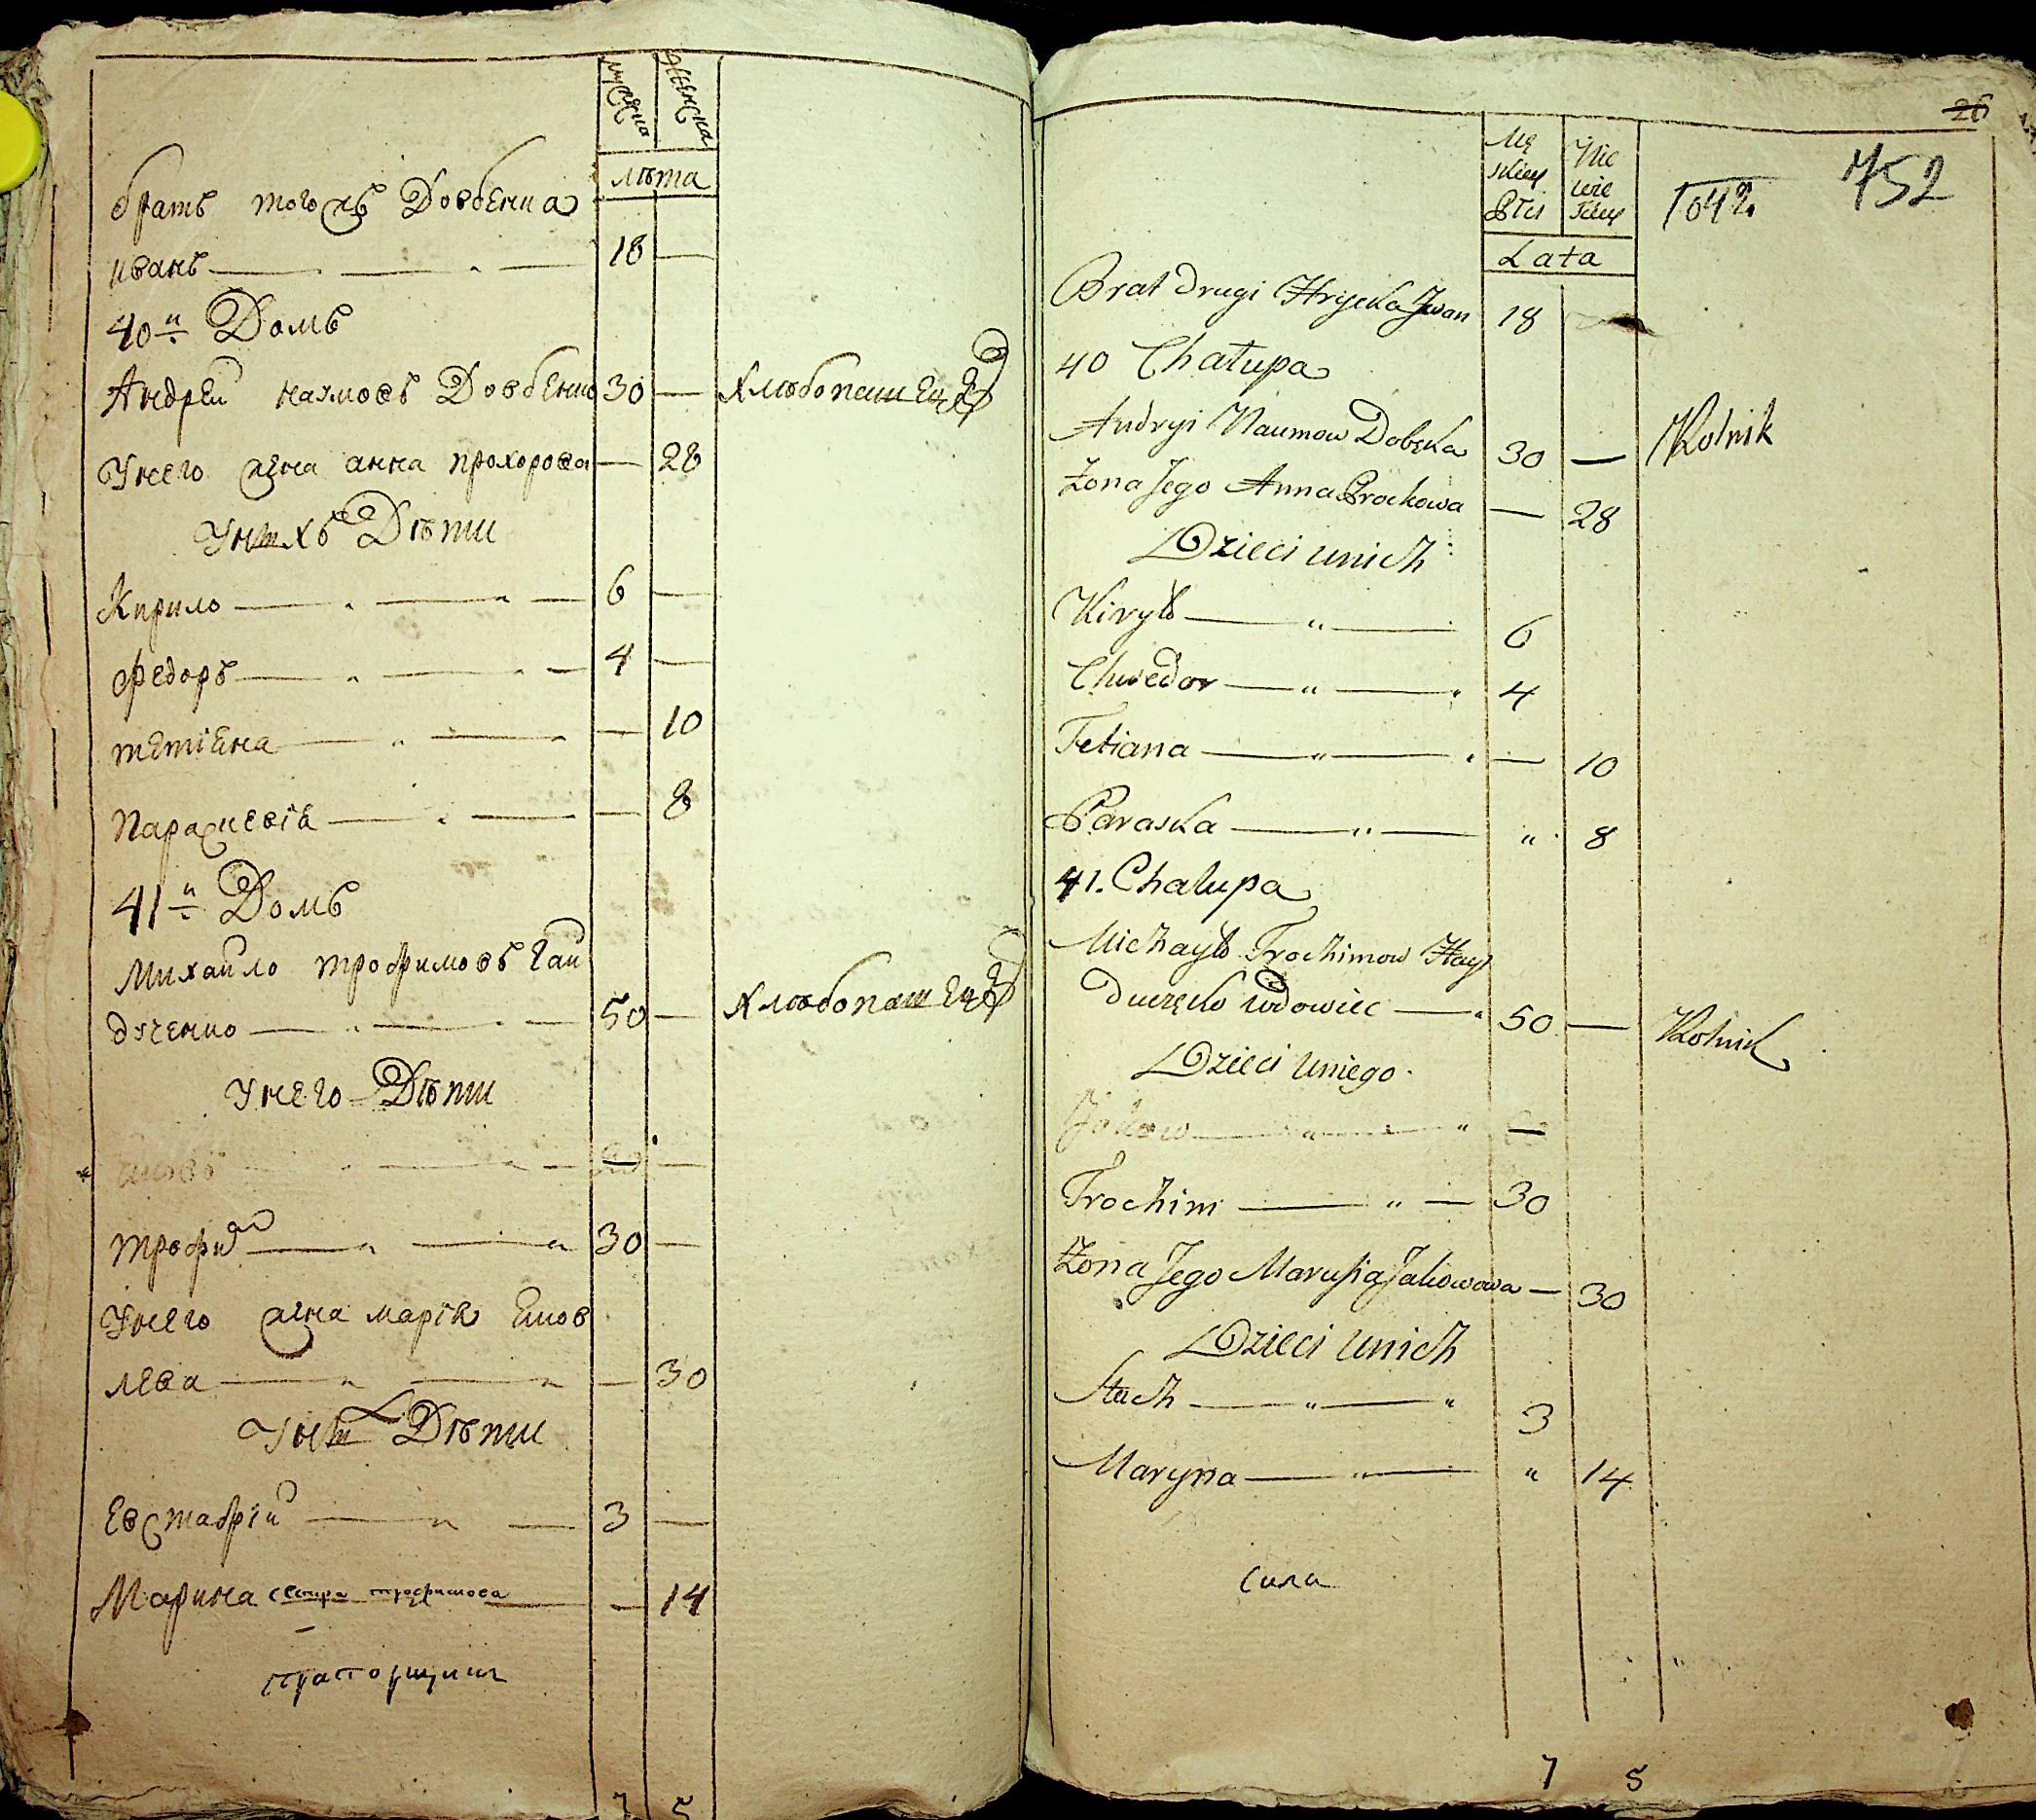 мужска женска
лѣта
братъ тогожъ Довбенка
иванъ — 18 —
40й Домъ
Андрей наумовъ Довбенко 30 — Хлѣбопашецъ
Унего жена анна прохорова — 28
Унихъ Дѣти
Кирило — 6 —
федоръ — 4 —
тетіѧна — 10
Параскевіѧ — 8
41й Домъ
Михайло трофимовъ гай
дученко — 50 — Хлѣбопашецъ
Унего Дѣти
трофим — 30 —
Унего жена маріѧ Іѧков
лева — 30
Уних Дѣти
Евстафій — 3 —
Марина сестра трофимова — 14
прапорщикъ
7 5
26
Mę skiey Płci Nie wie sciey 752
Lata
Brat drugi Hrycka Jwan 18
40 Chałupa
Andryi Naumow Dobęka 30 — Rolnik
Żona Jego Anna Prochowa — 28
Dzieci unich
Kiryło — " — 6
Chwedor — " — 4
Tetiana — " — 10
Paraska — " — " 8
41. Chalupa
Michayło Trochimow Hay
duczęko wdowiec — 50 — Rolnik
Dzieci uniego
Jakow — " — " —
Trochim — " — 30
Żona Jego Marusia Jakowowa — 30
Dzieci unich
Stach — " — " 3
Maryna — " — " 14
сила
7 5